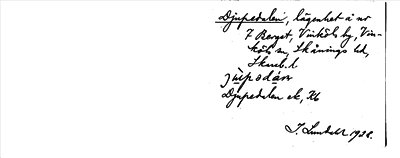 Djupedalen, lägenhet å nr
7 Berget, Vinköls by, Vin-
köls sn, Skånings hd,
Skarab. l
jùpədàɽ
Djupedalen ek, Kb
J. Lundahl 1928.